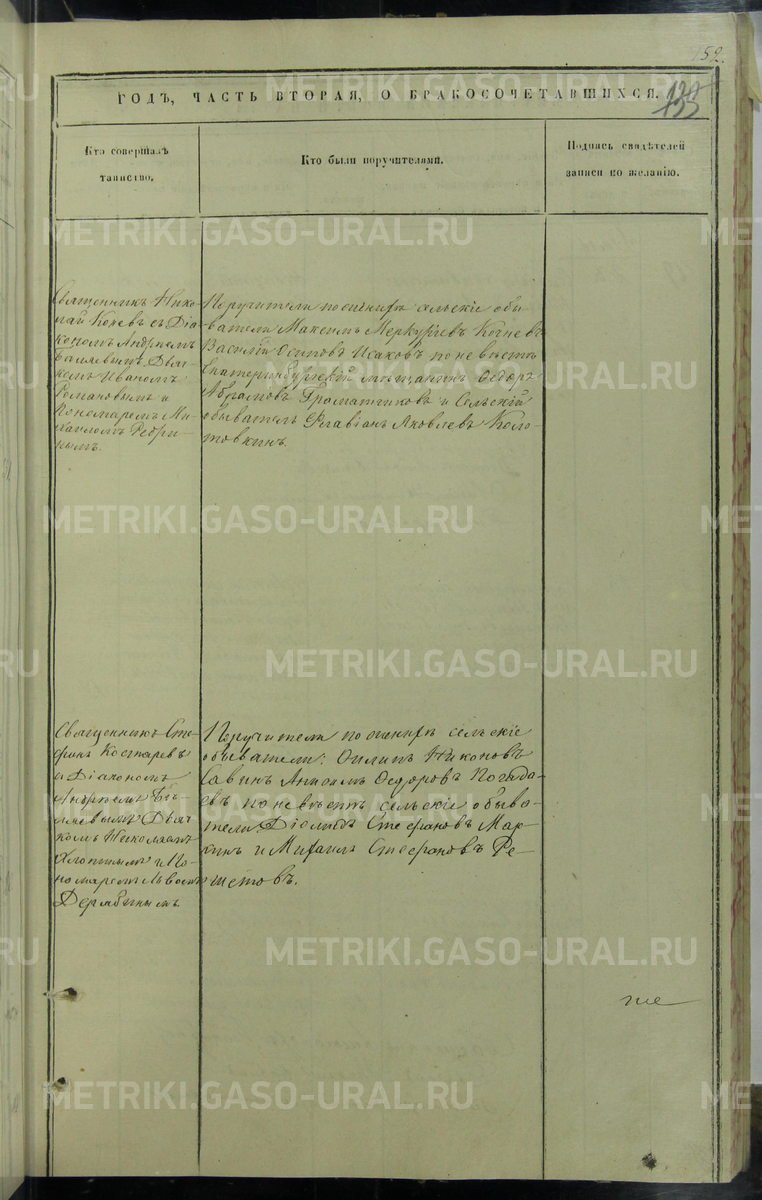 152.
ГОДЪ, ЧАСТЬ ВТОРАЯ, О БРАКОСОЧЕТАВШИХСЯ.
Кто совершалъ
таинство.
Кто были поручителями.
Подпись свидѣтелей
записи по желанію.
Священникъ Нико-
лай Коневъ съ Діа-
кономъ Андреемъ
Бѣляевымъ, Дьяч-
комъ Иваномъ
Романовымъ и
Пономаремъ Ми-
хаиломъ
Поручители по женихѣ сельскіе обы-
ватели Максимъ Меркурьевъ
Василій Осиповъ Исаковъ по невѣстѣ
Екатеринбургскій мѣщанинъ Ѳедоръ
Абрамовъ Граматчиковъ и Сельскій
обыватель Флавіанъ Яковлевъ Коло-
товкинъ.
Священникъ Сте-
фанъ Костаревъ
и Діакономъ
Андреемъ Бѣ-
ляевымъ Дьяч-
комъ Николаемъ
и По-
номаремъ Львомъ
Дерябинымъ.
Поручители по женихѣ сельскіе
обыватели: Филипъ Никоновъ
Савинъ Ѳедоровъ
по невѣстѣ сельскіе обыва-
тели Стефановъ Мар-
и Михаилъ Стефановъ Ре-
шетовъ.
METRIKI.GASO-URAL.RU